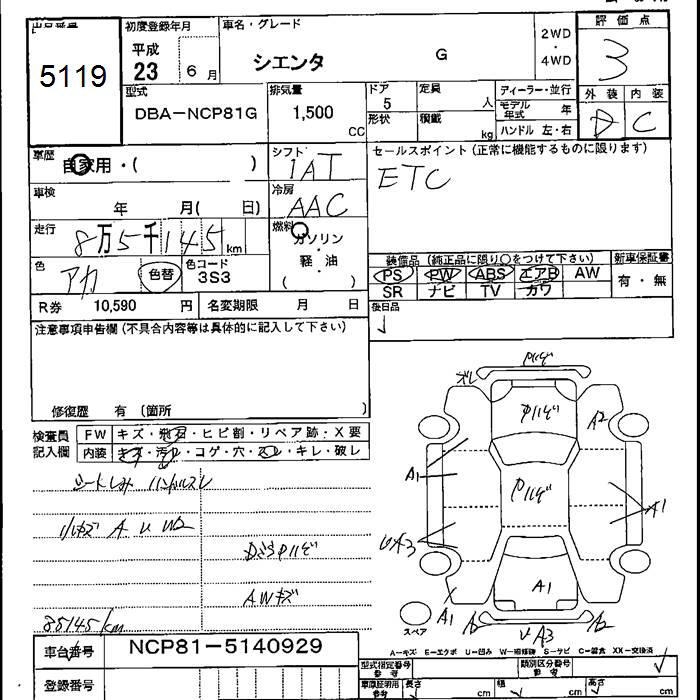 初度登録年月
車名・グレード
評価点
5119
平成
23 6月
シエンタ G
2WD
・
4WD
3
外装 内装
D C
型式
DBA-NCP81G
排気量
1,500 CC
ドア
5
形状
定員
人
積載
kg
ディーラー・並行
モデル年式 年
ハンドル 左・右
車歴
自家用・( )
シフト
IAT
セールスポイント(正常に機能するものに限ります)
ETC
車検
年 月( 日)
冷房
AAC
走行
8万5千145km
燃料
ガソリン
軽・油
( ・ )
色
アカ
色替
色コード
3S3
装備品(純正品に限り○をつけて下さい)
新車保証書
PS PW ABS エアB AW
SR ナビ TV カワ
有・無
R券 10,590 円
名変期限 月 日
後日品
注意事項申告欄(不具合内容等は具体的に記入して下さい)
修復歴 有(箇所 )
検査員
記入欄
FW キズ・飛石・ヒビ割・リペア跡・X要
内装 キズ・汚れ・コゲ・穴・スレ・キレ・破レ
シートしみ ハンドルスレ
小キズ A U W2
AWキズ
85145km
A1
A2
A1
UA3
A1
A1
A2
UA3
A2
スペア
A-キズ E-エクボ U-凹み W-補修跡 S-サビ C-腐食 XX-交換済
車台番号 NCP81-5140929
登録番号
型式指定番号
参考
類別区分番号
参考
車庫証明用
参考
長さ cm
幅 cm
高さ cm